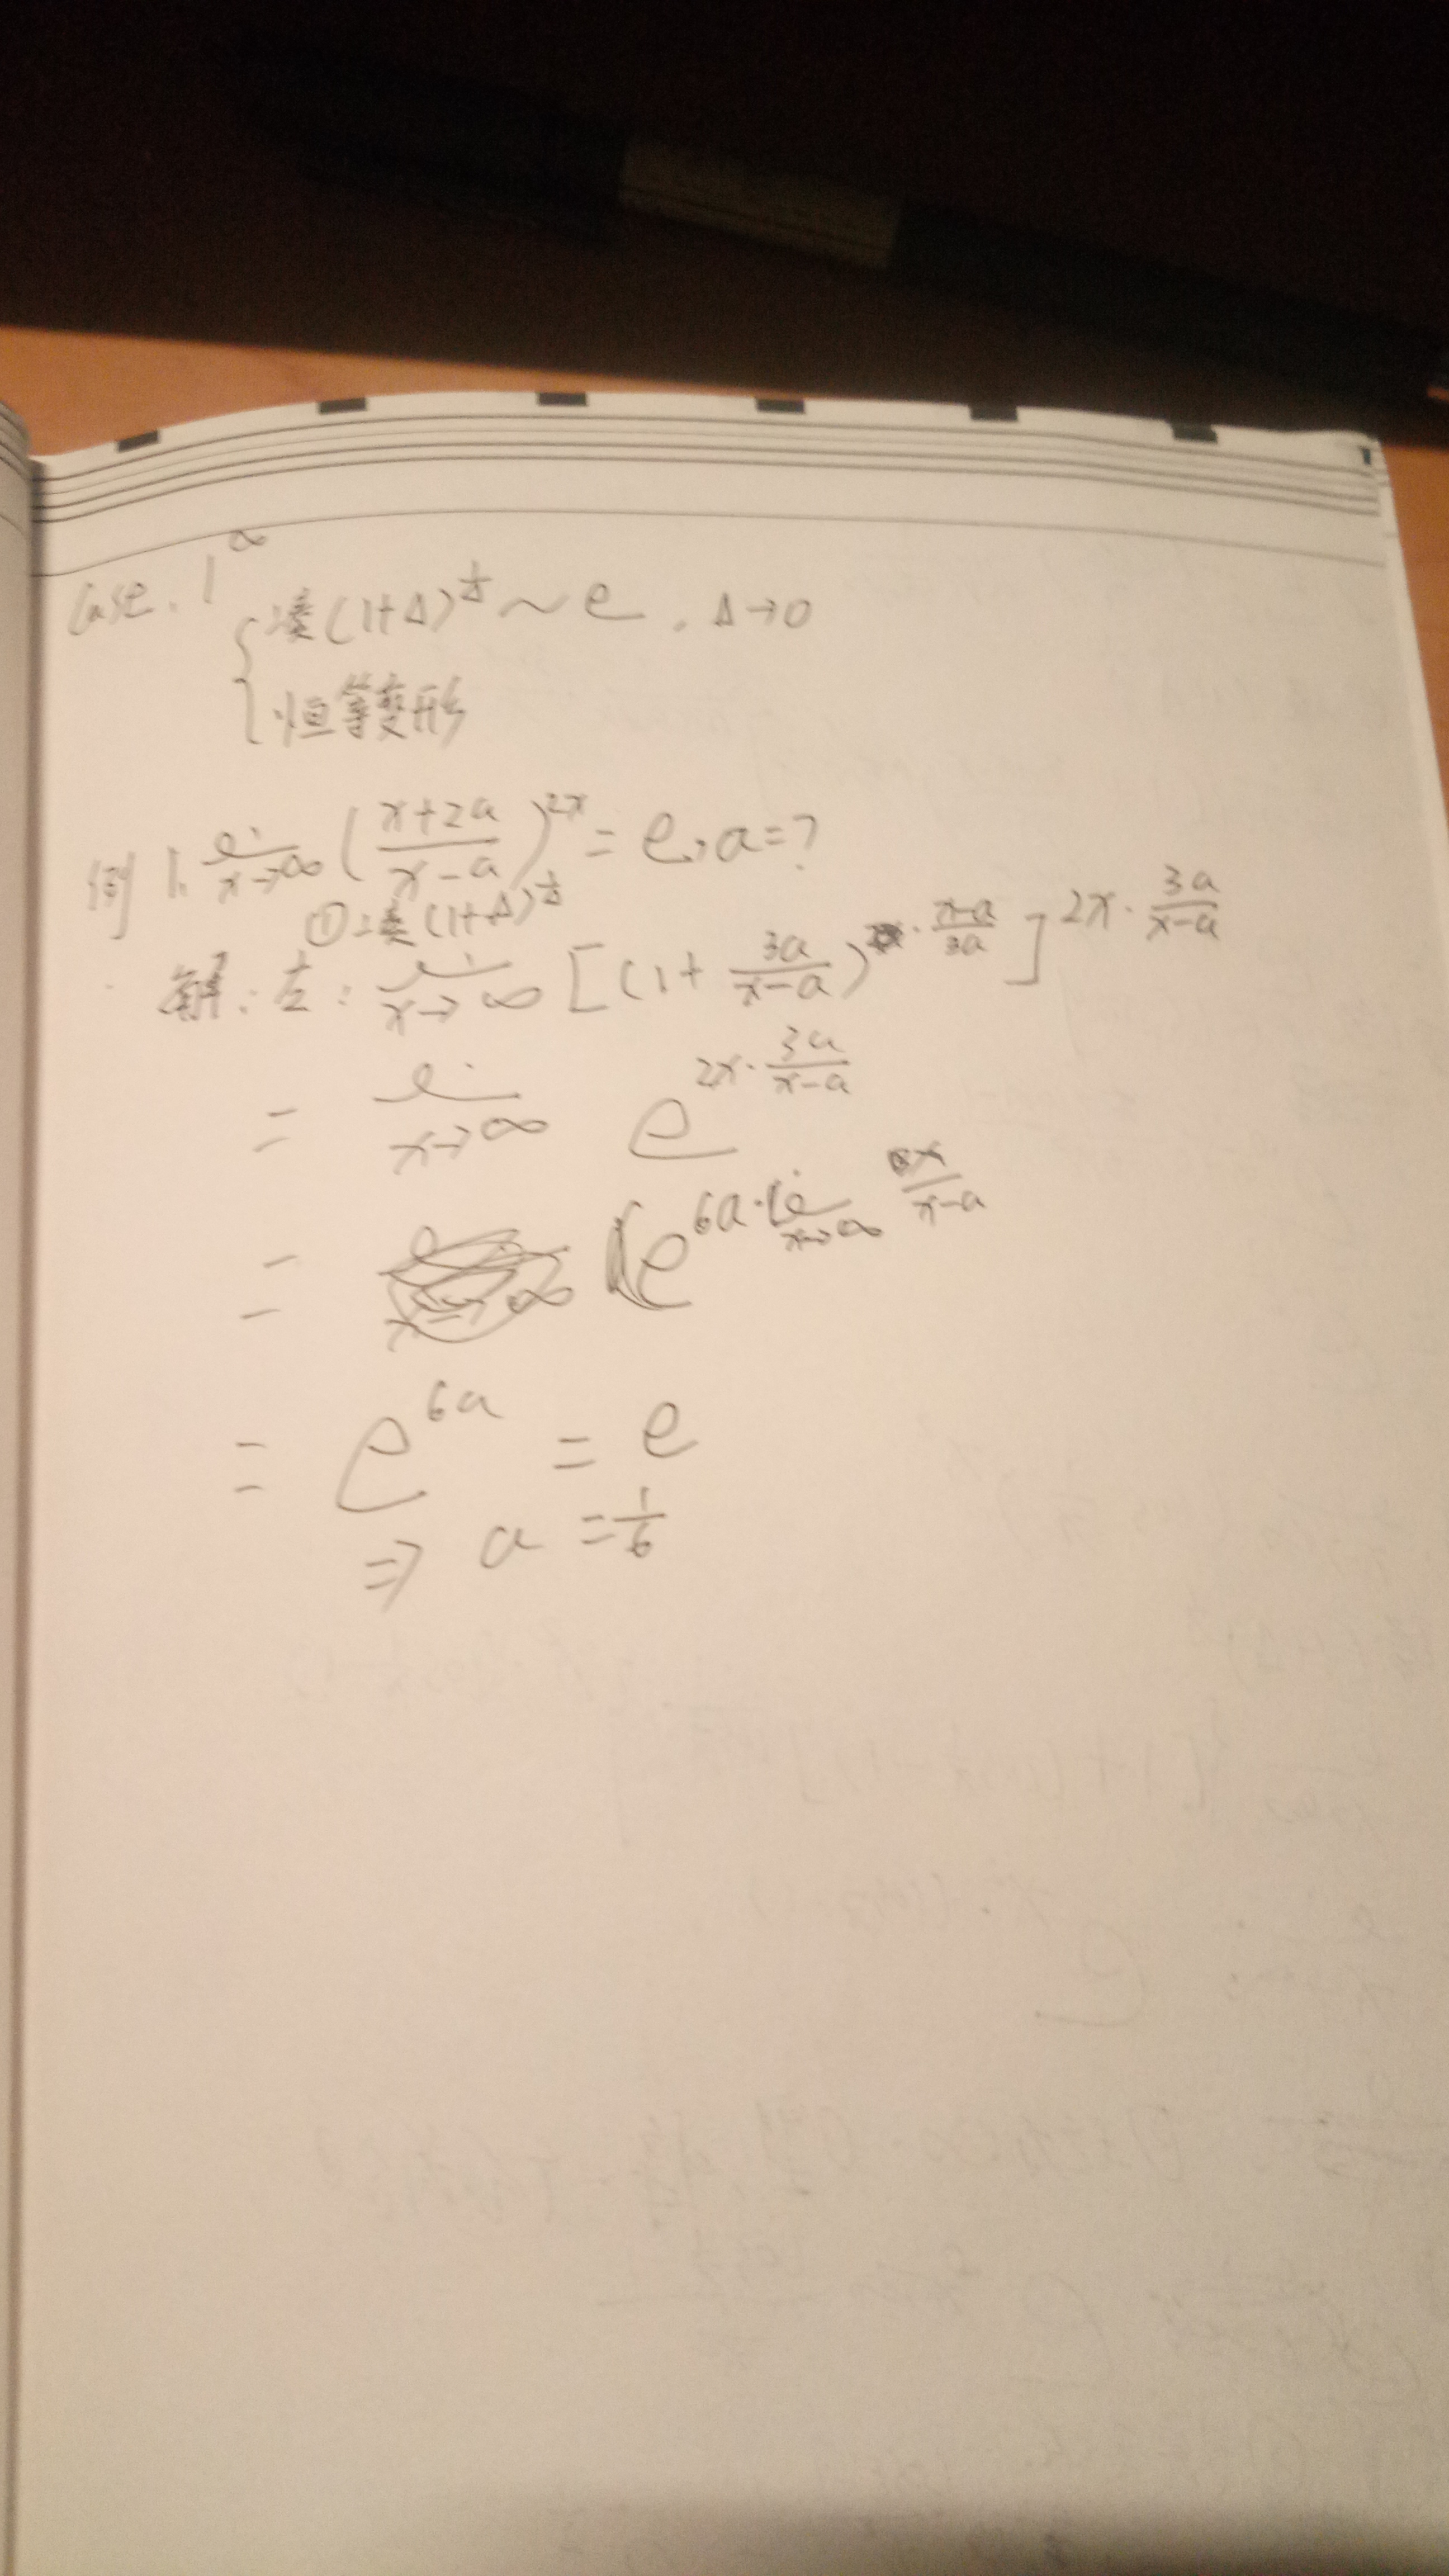 Case. 1^∞
{ 凑(1+Δ)^{1/Δ} ~ e , Δ→0
恒等变形
例1. lim_{x→∞} ( (x+2a)/(x-a) )^{2x} = e, a=?
①凑(1+Δ)^{1/Δ}
解: 左: lim_{x→∞} [ (1+ 3a/(x-a) )^{· (x-a)/3a} ]^{2x · 3a/(x-a)}
= lim_{x→∞} e^{2x · 3a/(x-a)}
= e^{6a · lim_{x→∞} x/(x-a)}
= e^{6a} = e
⇒ a = 1/6